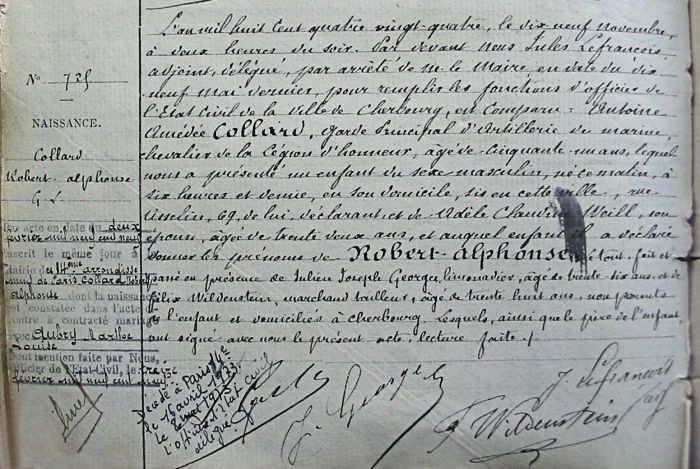 N° 725
NAISSANCE.
Collard
Robert alphonse
G. L.
Par acte en date du deux
février mil neuf cent neuf
inscrit le même jour à
mairie du 14ème arrondisse-
ment de Paris Collard Robert
Alphonse dont la naissance
est constatée dans l'acte
contre a contracté mariage
avec Aubry Marthe
Louise
Dont mention faite par Nous,
Officier de l'Etat-Civil, le treize
février mil neuf cent neuf
L'an mil huit cent quatre vingt-quatre, le dix neuf novembre,
à deux heures du soir. Par devant Nous Jules Lefrançois
adjoint, délégué, par arrêté de M. le Maire en date du dix
neuf Mai dernier, pour remplir les fonctions d'officier de
l'Etat Civil de la Ville de Cherbourg, est Comparu : Antoine
Amédée Collard, Garde Principal d'Artillerie de marine,
chevalier de la Légion d'honneur, âgé de Cinquante un ans, lequel
nous a présenté un enfant du sexe masculin, né ce matin, à
six heures et demie, en son domicile, sis en cette ville, rue
Asselin, 69, de lui, déclarant, et de Adèle Claudine Weill, son
épouse, âgée de trente deux ans, et auquel enfant il a déclaré
donner les prénoms de Robert-alphonse. Le tout fait et
passé en présence de Julien Joseph Georges, limonadier, âgé de trente six ans et de
Félix Wildenstein, marchand tailleur, âgé de trente huit ans, non parents
de l'enfant et domiciliés à Cherbourg. Lesquels, ainsi que le père de l'enfant
ont signé avec nous le présent acte, lecture faite.
Décédé à Paris 14e
le 16 avril 1973.
le 2 mai 1973
L'Officier d'état civil
délégué
J. Georges
J. Lefrançois
F Wildenstein